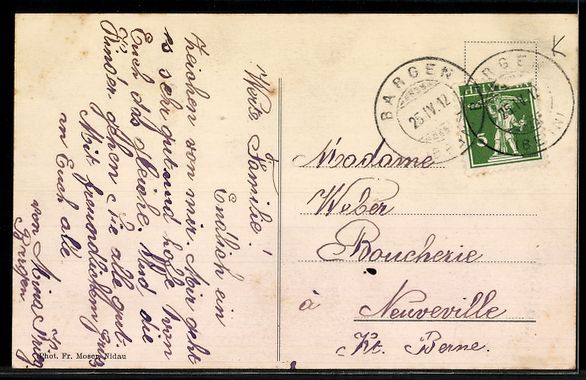 Werte Familie!
Endlich ein
Zeichen von mir. Mir geht
es sehr gut und hoffe von
Euch das gleiche. Sind die
Kinder gehen sie alle gut.
Mit freundlichem Gruß
an Euch alle
von
Bargen
Phot. Fr. Moser Nidau
BARGEN
25.IV.12
BARGE
(BERN)
HELVETIA
5
Madame
Weber
Boucherie
à Neuveville
Kt. Berne.
K